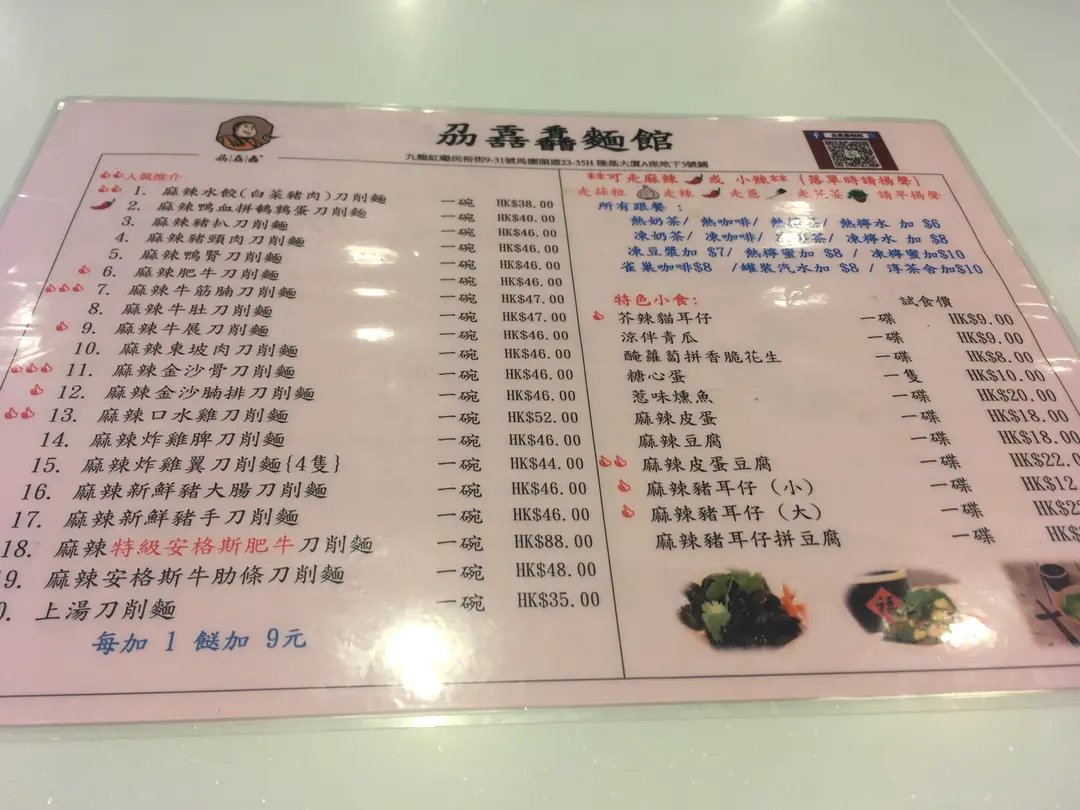 刕嚞馫麵館
九龍紅磡民裕街9-31號馬頭圍道23-35H 隆基大廈A座地下3號鋪
人氣推介
1. 麻辣水餃(白菜豬肉)刀削麵 一碗 HK$38.00
2. 麻辣鴨血拼鵪鶉蛋刀削麵 一碗 HK$40.00
3. 麻辣豬扒刀削麵 一碗 HK$46.00
4. 麻辣豬頸肉刀削麵 一碗 HK$46.00
5. 麻辣鴨腎刀削麵 一碗 HK$46.00
6. 麻辣肥牛刀削麵 一碗 HK$46.00
7. 麻辣牛筋腩刀削麵 一碗 HK$47.00
8. 麻辣牛肚刀削麵 一碗 HK$47.00
9. 麻辣牛展刀削麵 一碗 HK$46.00
10. 麻辣東坡肉刀削麵 一碗 HK$46.00
11. 麻辣金沙骨刀削麵 一碗 HK$46.00
12. 麻辣金沙腩排刀削麵 一碗 HK$46.00
13. 麻辣口水雞刀削麵 一碗 HK$52.00
14. 麻辣炸雞脾刀削麵 一碗 HK$46.00
15. 麻辣炸雞翼刀削麵{4隻} 一碗 HK$44.00
16. 麻辣新鮮豬大腸刀削麵 一碗 HK$46.00
17. 麻辣新鮮豬手刀削麵 一碗 HK$46.00
18. 麻辣特級安格斯肥牛刀削麵 一碗 HK$88.00
9. 麻辣安格斯牛肋條刀削麵 一碗 HK$48.00
0. 上湯刀削麵 一碗 HK$35.00
每加 1 餸加 9元
**可走麻辣 或 小辣** {落單時請揚聲}
走蒜粒 走辣 走蔥 走芫荽 請早揚聲
所有跟餐:
熱奶茶/ 熱咖啡/ 熱 茶/ 熱檸水 加 $6
凍奶茶/ 凍咖啡/ 茶/ 凍檸水 加 $8
凍豆漿加 $7/ 熱檸蜜加 $8 / 凍檸蜜加$10
雀巢咖啡$8 /罐裝汽水加 $8 / 洋茶舍加$10
特色小食: 試食價
芥辣貓耳仔 一碟 HK$9.00
涼伴青瓜 一碟 HK$9.00
醃蘿蔔拼香脆花生 一碟 HK$8.00
糖心蛋 一隻 HK$10.00
惹味燻魚 一碟 HK$20.00
麻辣皮蛋 一碟 HK$18.00
麻辣豆腐 一碟 HK$18.00
麻辣皮蛋豆腐 一碟 HK$22.0
麻辣豬耳仔（小） 一碟 HK$12
麻辣豬耳仔（大） 一碟 HK$2
麻辣豬耳仔拼豆腐 一碟 HK$
福